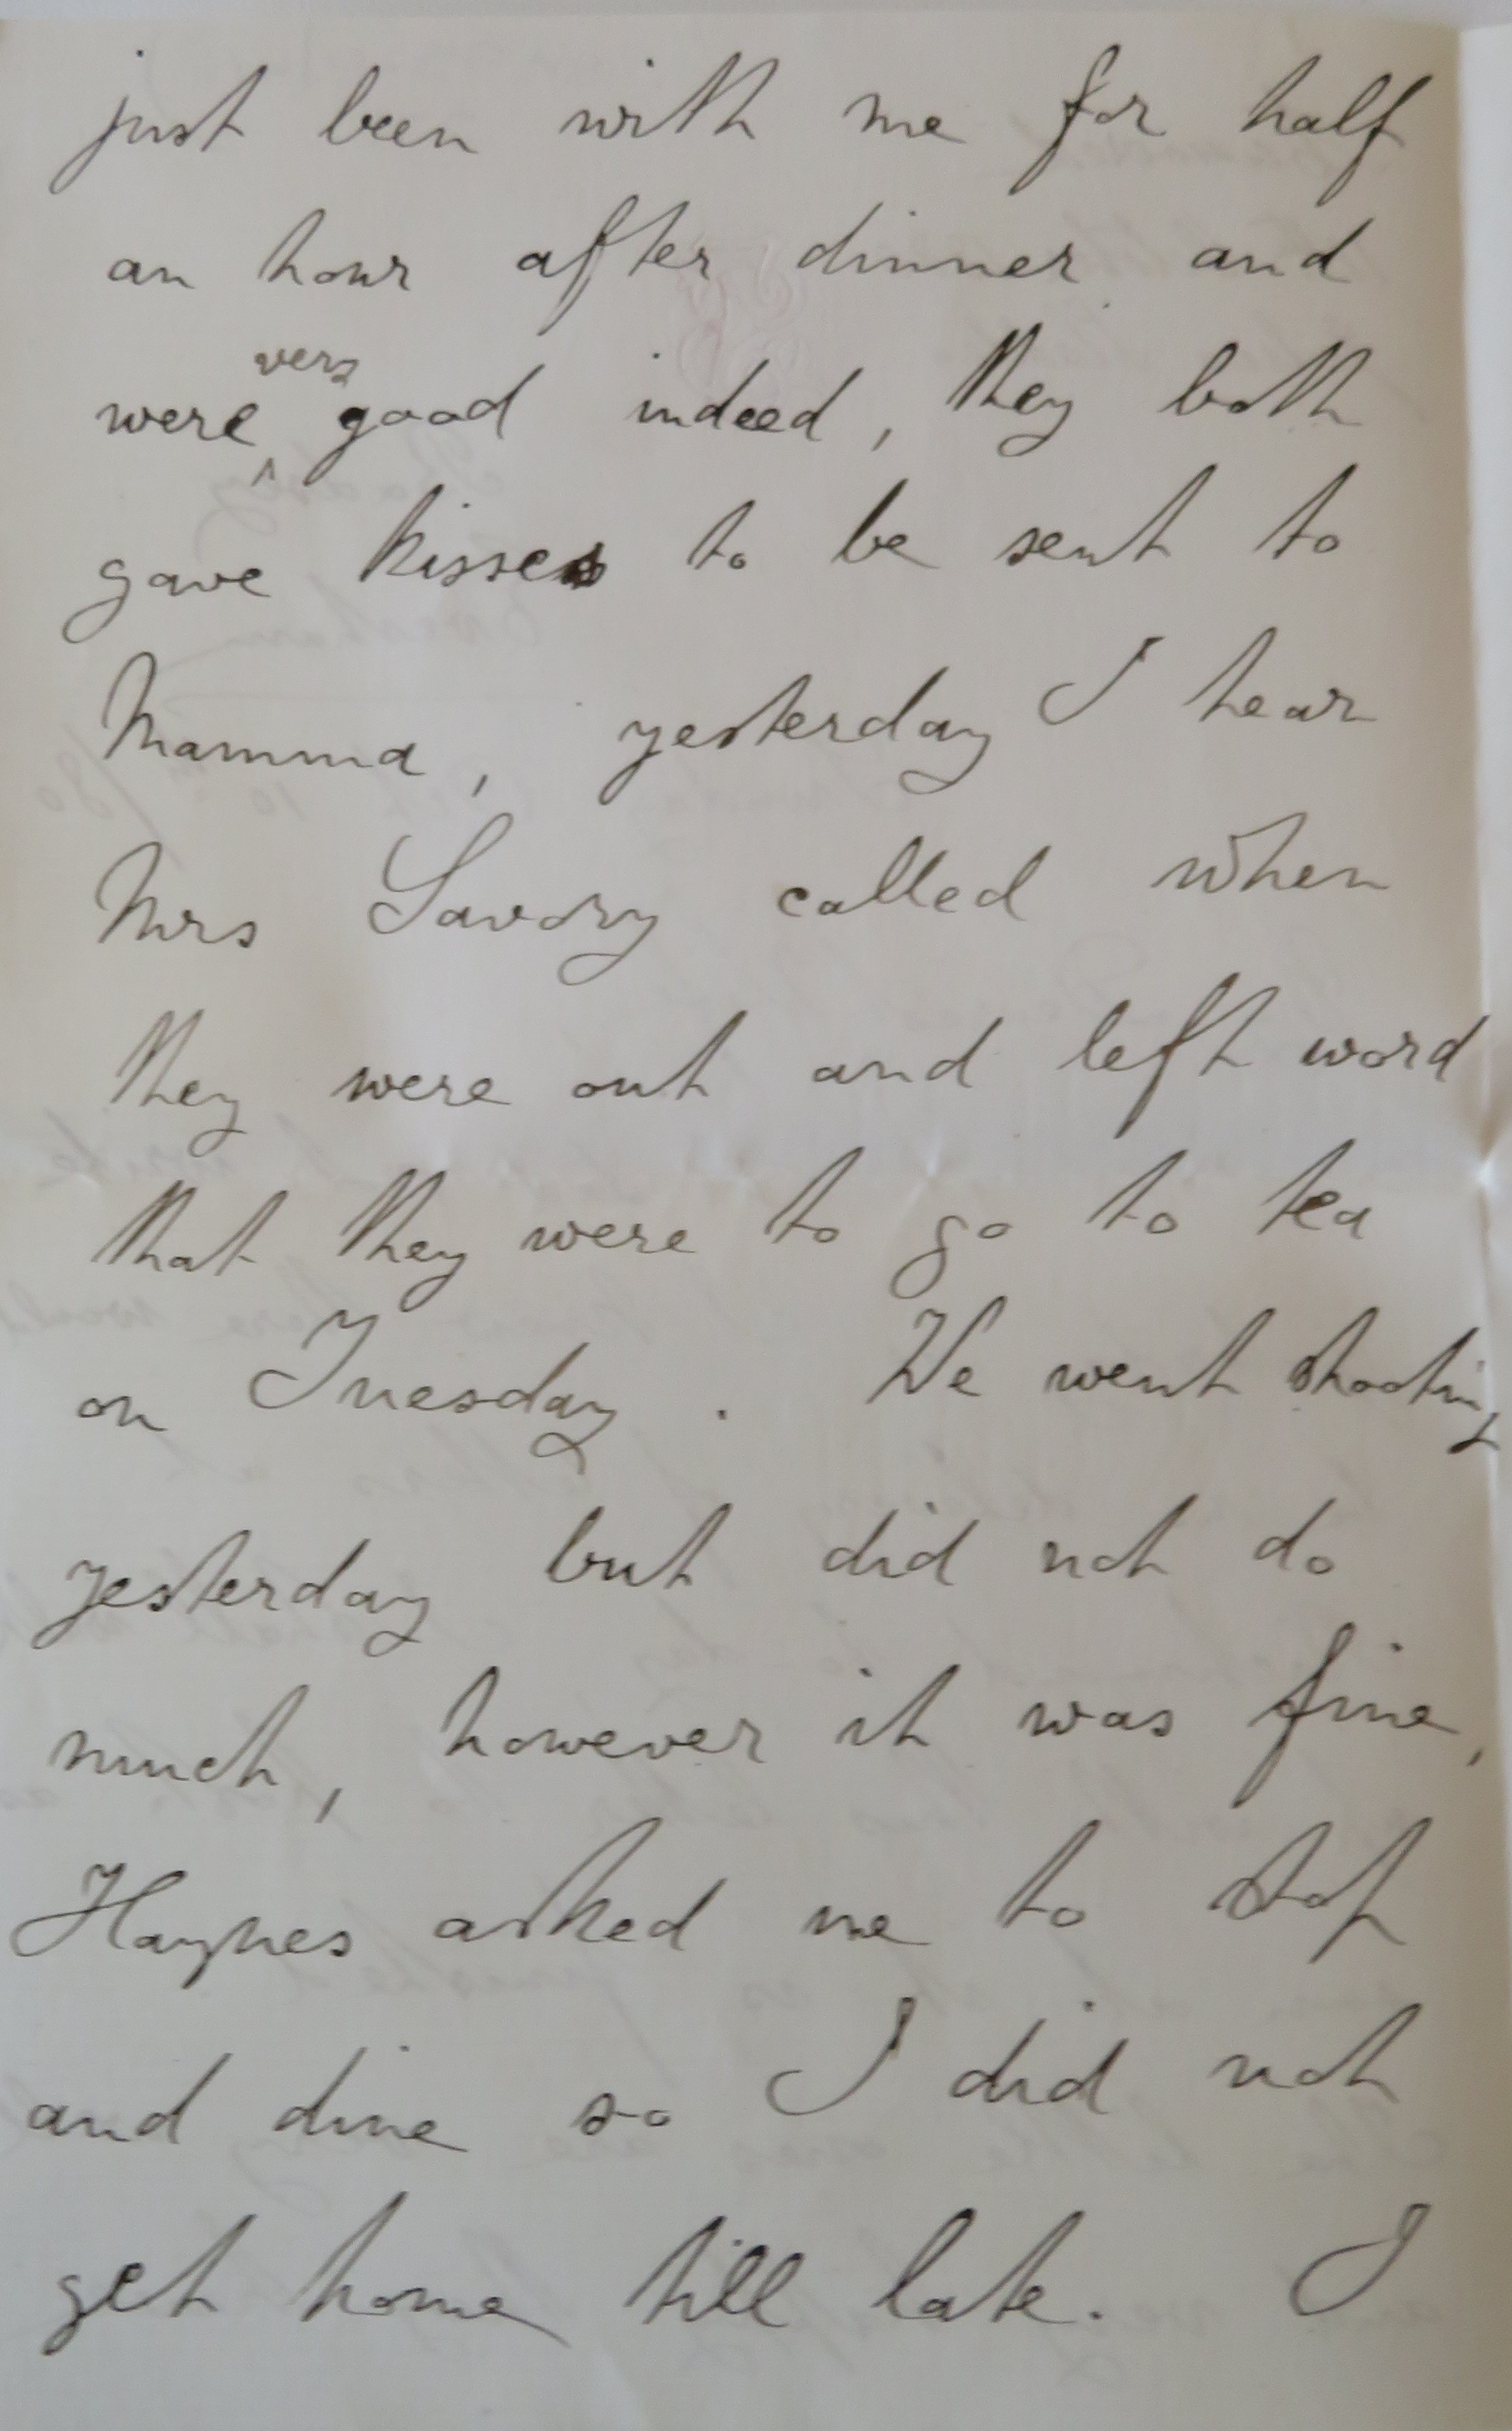 just been with me for half
an hour after dinner and
were very good indeed, they both
gave kisses to be sent to
Mamma, yesterday I hear
Mrs Savory called when
they were out and left word
that they were to go to tea
on Tuesday. We went shooting
yesterday but did not do
much, however it was fine,
Haynes asked me to stop
and dine so I did not
get home till late. I